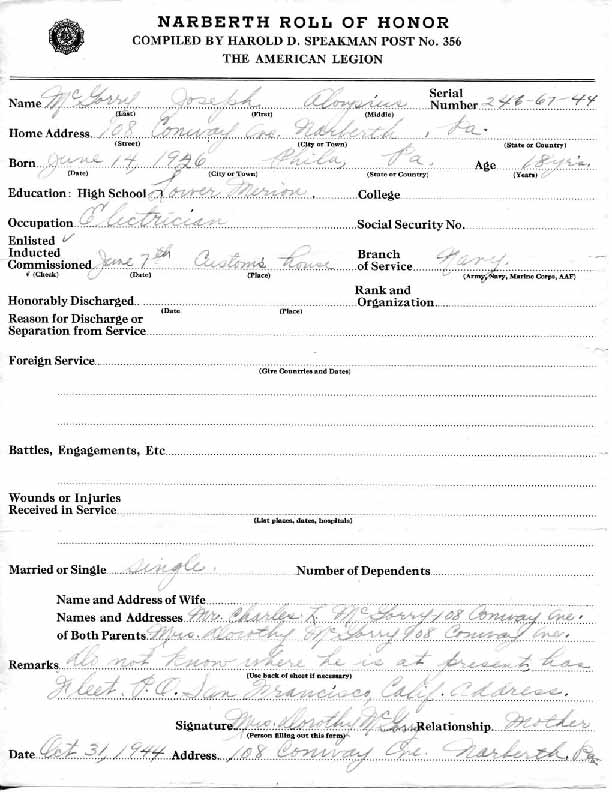 NARBERTH ROLL OF HONOR
COMPILED BY HAROLD D. SPEAKMAN POST No. 356
THE AMERICAN LEGION
Name McGorry Joseph Aloysius Serial Number 246-67-44
(Last) (First) (Middle)
Home Address 108 Conway Ave. Narberth, Pa.
(Street) (City or Town) (State or Country)
Born June 14 1926 Phila, Pa. Age 18 yrs.
(Date) (City or Town) (State or Country) (Years)
Education: High School Lower Merion. College
Occupation Electrician Social Security No.
Enlisted ✓
Inducted
Commissioned June 7th Customs House Branch of Service Navy.
✓ (Check) (Date) (Place) (Army, Navy, Marine Corps, AAF)
Honorably Discharged Rank and Organization
(Date (Place)
Reason for Discharge or
Separation from Service
Foreign Service
(Give Countries and Dates)
Battles, Engagements, Etc
Wounds or Injuries
Received in Service
(List places, dates, hospitals)
Married or Single single. Number of Dependents
Name and Address of Wife
Names and Addresses Mr. Charles L McGorry 108 Conway Ave.
of Both Parents Mrs. Dorothy McGorry 108 Conway Ave.
Remarks Do not know where he is at present, has
(Use back of sheet if necessary)
Fleet. P.O. San Francisco, Calif. address.
Signature Mrs. Dorothy McGorry Relationship Mother
(Person filling out this form)
Date Oct 31, 1944 Address 108 Conway Ave. Narberth, Pa.